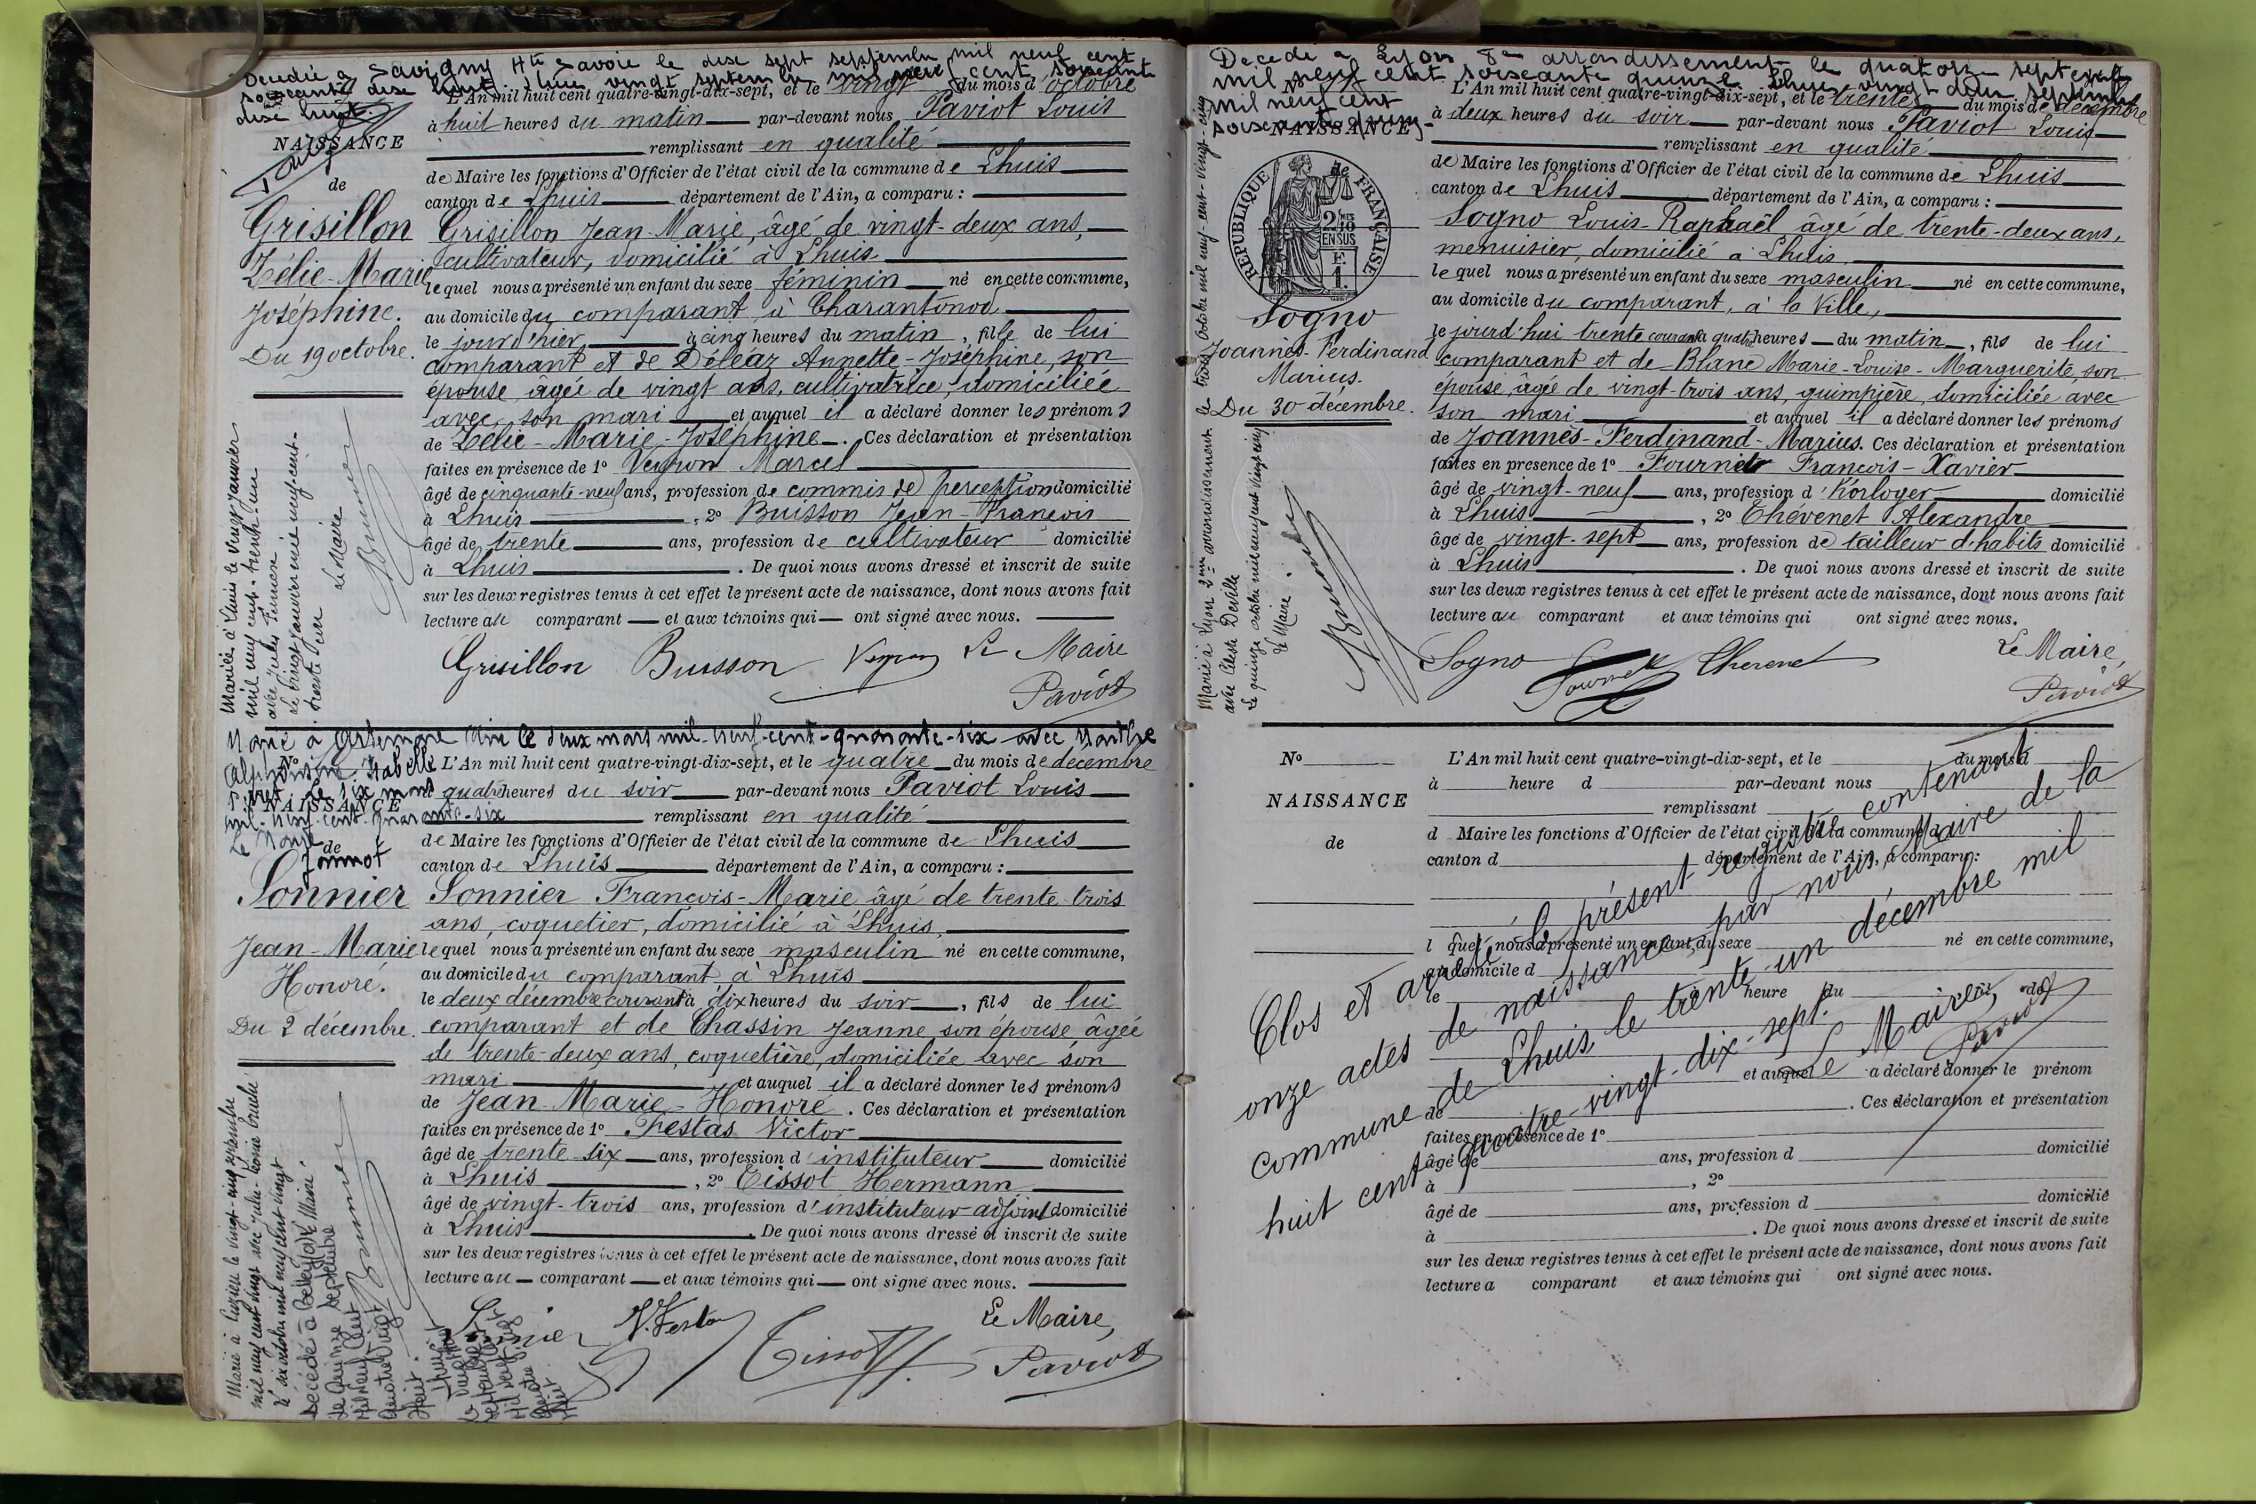 Decedée a Savigny Hte Savoie le dix sept septembre mil neuf cent
soixante dix huit. Lhuis vingt septembre mil neuf cent soixante
dix huit.
NAISSANCE
de
Grisillon
Zélie-Marie
Joséphine.
Du 19 octobre.
L'An mil huit cent quatre-vingt-dix-sept, et le vingt du mois d'octobre
à huit heures du matin par-devant nous Paviot Louis
remplissant en qualité
de Maire les fonctions d'Officier de l'état civil de la commune de Lhuis
canton de Lhuis département de l'Ain, a comparu :
Grisillon Jean-Marie, âgé de vingt-deux ans,
cultivateur, domicilié à Lhuis
lequel nous a présenté un enfant du sexe féminin né en cette commune,
au domicile du comparant à Charantonod
le jour d'hier à cinq heures du matin, fille de lui
comparant et de Déléaz Annette-Joséphine, son
épouse âgée de vingt ans, cultivatrice, domiciliée
avec son mari et auquel il a déclaré donner les prénoms
de Zélie-Marie-Joséphine. Ces déclaration et présentation
faites en présence de 1° Veyron Marcel
âgé de cinquante-neuf ans, profession de commis de perception domicilié
à Lhuis, 2° Buisson Jean-François
âgé de trente ans, profession de cultivateur domicilié
à Lhuis. De quoi nous avons dressé et inscrit de suite
sur les deux registres tenus à cet effet le présent acte de naissance, dont nous avons fait
lecture au comparant et aux témoins qui ont signé avec nous.
Grisillon Buisson Veyron Le Maire
Paviot
Mariée à Lhuis le vingt janvier
mil neuf cent trente-un
avec Jules
Le vingt janvier mil neuf cent-
trente un
Le Maire
Marié à Artemare Ain le deux mars mil-neuf-cent-quarante-six avec Marthe
Alphonsine Isabelle
le six mars
mil-neuf-cent-quarante-six
Le Maire
Jannot
N°
NAISSANCE
de
Sonnier
Jean-Marie
Honoré.
Du 2 décembre.
L'An mil huit cent quatre-vingt-dix-sept, et le quatre du mois de décembre
à quatre heures du soir par-devant nous Paviot Louis
remplissant en qualité
de Maire les fonctions d'Officier de l'état civil de la commune de Lhuis
canton de Lhuis département de l'Ain, a comparu :
Sonnier François-Marie âgé de trente-trois
ans, coquetier, domicilié à Lhuis,
lequel nous a présenté un enfant du sexe masculin né en cette commune,
au domicile du comparant à Lhuis
le deux décembre courant à dix heures du soir, fils de lui
comparant et de Chassin Jeanne son épouse âgée
de trente-deux ans, coquetière, domiciliée avec son
mari et auquel il a déclaré donner les prénoms
de Jean-Marie-Honoré. Ces déclaration et présentation
faites en présence de 1° Festas Victor
âgé de trente-six ans, profession d'instituteur domicilié
à Lhuis, 2° Tissot Hermann
âgé de vingt-trois ans, profession d'instituteur adjoint domicilié
à Lhuis. De quoi nous avons dressé et inscrit de suite
sur les deux registres tenus à cet effet le présent acte de naissance, dont nous avons fait
lecture au comparant et aux témoins qui ont signé avec nous.
Sonnier V. Festas Tissot H. Le Maire,
Paviot
Marié à Luzieu le vingt-cinq septembre
mil neuf cent vingt avec
Le six octobre mil neuf cent vingt
Le Maire.
Décédé à Belley
le Quinze Septembre
Mil Neuf Cent
Quatre Vingt
Huit.
Décédé a Lyon 8me arrondissement le quatorze septembre
mil neuf cent soixante quinze Lhuis vingt deux septembre
mil neuf cent
soixante quinze
N°
NAISSANCE
de
RÉPUBLIQUE FRANÇAISE
2/10
EN SUS
F.
1.
Sogno
Joannès-Ferdinand
Marius.
Du 30 décembre.
L'An mil huit cent quatre-vingt-dix-sept, et le trente du mois de décembre
à deux heures du soir par-devant nous Paviot Louis
remplissant en qualité
de Maire les fonctions d'Officier de l'état civil de la commune de Lhuis
canton de Lhuis département de l'Ain, a comparu :
Sogno Louis-Raphaël âgé de trente-deux ans,
menuisier, domicilié à Lhuis
lequel nous a présenté un enfant du sexe masculin né en cette commune,
au domicile du comparant, à la Ville,
le jourd'hui trente courant à quatre heures du matin, fils de lui
comparant et de Blanc Marie-Louise-Marguerite, son
épouse, âgée de vingt-trois ans, guimpière, domiciliée avec
son mari et auquel il a déclaré donner les prénoms
de Joannès-Ferdinand-Marius. Ces déclaration et présentation
faites en présence de 1° Fournet François-Xavier
âgé de vingt-neuf ans, profession d'horloger domicilié
à Lhuis, 2° Thévenet Alexandre
âgé de vingt-sept ans, profession de tailleur d'habits domicilié
à Lhuis. De quoi nous avons dressé et inscrit de suite
sur les deux registres tenus à cet effet le présent acte de naissance, dont nous avons fait
lecture au comparant et aux témoins qui ont signé avec nous.
Sogno Fournet Thevenet Le Maire,
Paviot
Marié à Lyon 2me arrondissement le trois octobre mil neuf cent vingt-cinq
avec Céleste
Le quinze octobre mil neuf cent vingt cinq
Le Maire.
N°
NAISSANCE
de
L'An mil huit cent quatre-vingt-dix-sept, et le du mois d
à heure d par-devant nous
remplissant
d Maire les fonctions d'Officier de l'état civil de la commune d
canton d département de l'Ain, a comparu :
l quel nous a présenté un enfant du sexe né en cette commune,
au domicile d
le heure du de
et auquel a déclaré donner le prénom
de . Ces déclaration et présentation
faites en présence de 1°
âgé de ans, profession d domicilié
à , 2°
âgé de ans, profession d domicilié
à . De quoi nous avons dressé et inscrit de suite
sur les deux registres tenus à cet effet le présent acte de naissance, dont nous avons fait
lecture a comparant et aux témoins qui ont signé avec nous.
Clos et arrêté le présent registre contenant
onze actes de naissance, par nous, Maire de la
commune de Lhuis, le trente-un décembre mil
huit cent quatre-vingt-dix-sept.
Le Maire,
Paviot